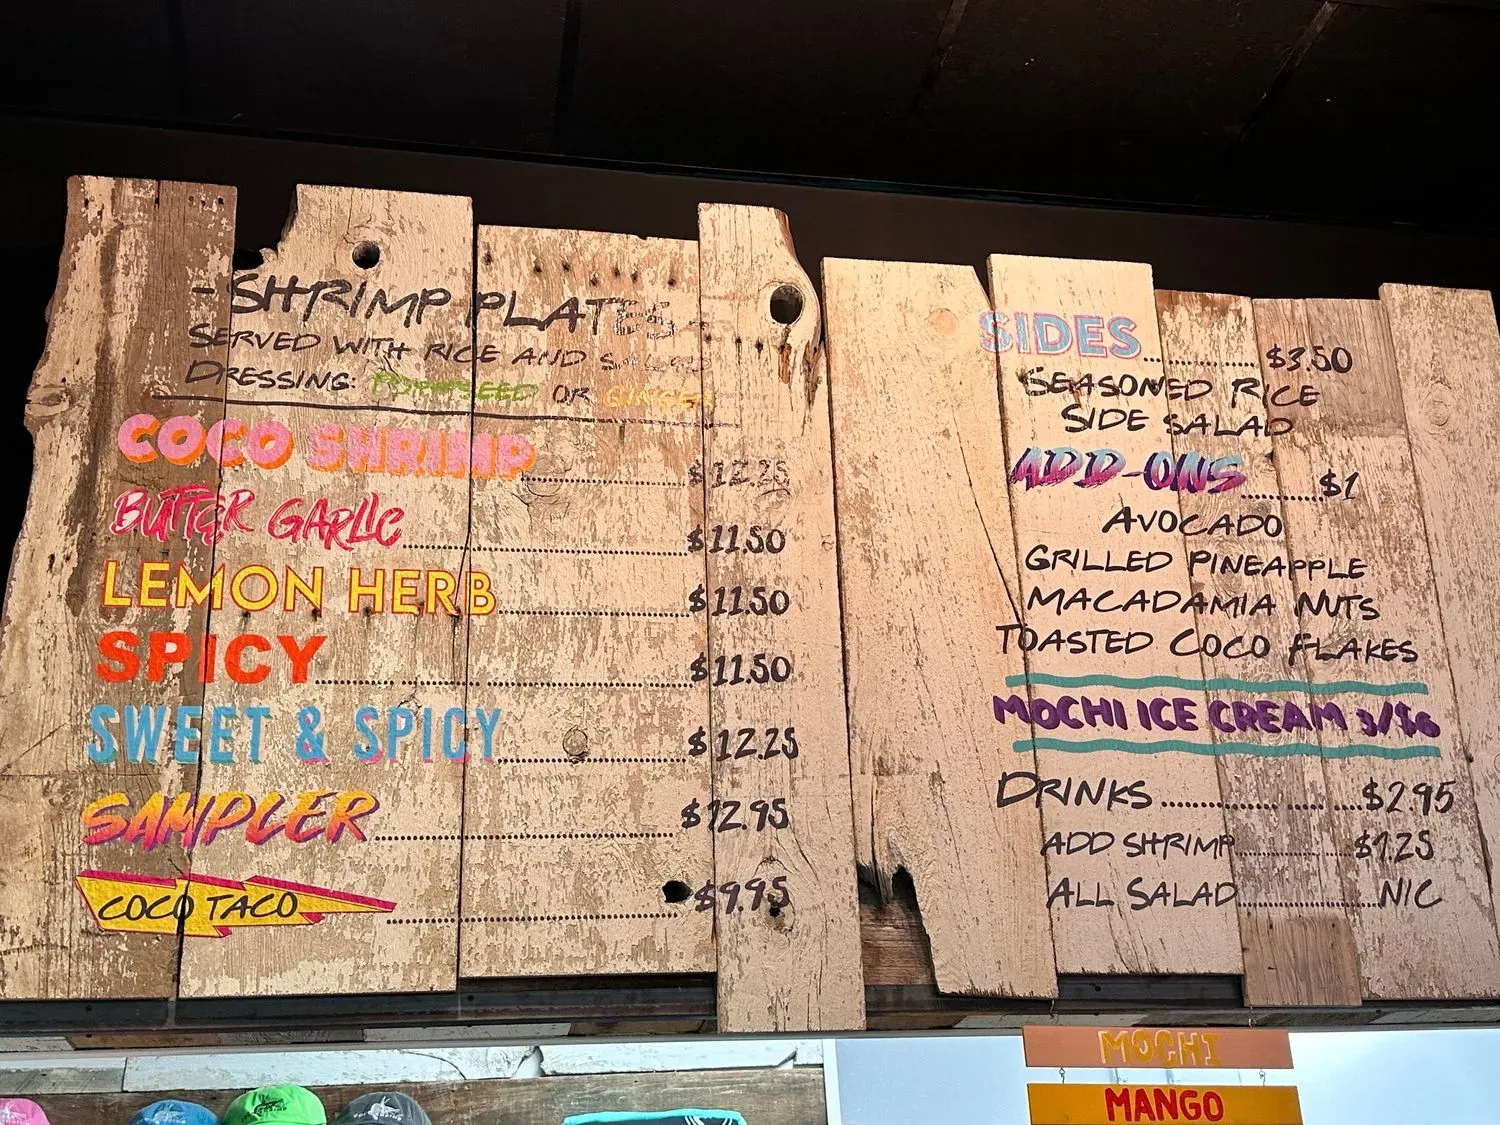 -SHRIMP PLATES-
SERVED WITH RICE AND SALAD
DRESSING: POPPYSEED OR GINGER
COCO SHRIMP........$12.25
BUTTER GARLIC........$11.50
LEMON HERB........$11.50
SPICY........$11.50
SWEET & SPICY........$12.25
SAMPLER........$12.95
COCO TACO........$9.95
SIDES........$3.50
SEASONED RICE
SIDE SALAD
ADD-ONS........$1
AVOCADO
GRILLED PINEAPPLE
MACADAMIA NUTS
TOASTED COCO FLAKES
MOCHI ICE CREAM 3/$6
DRINKS........$2.95
ADD SHRIMP........$1.25
ALL SALAD........N/C
MOCHI
MANGO